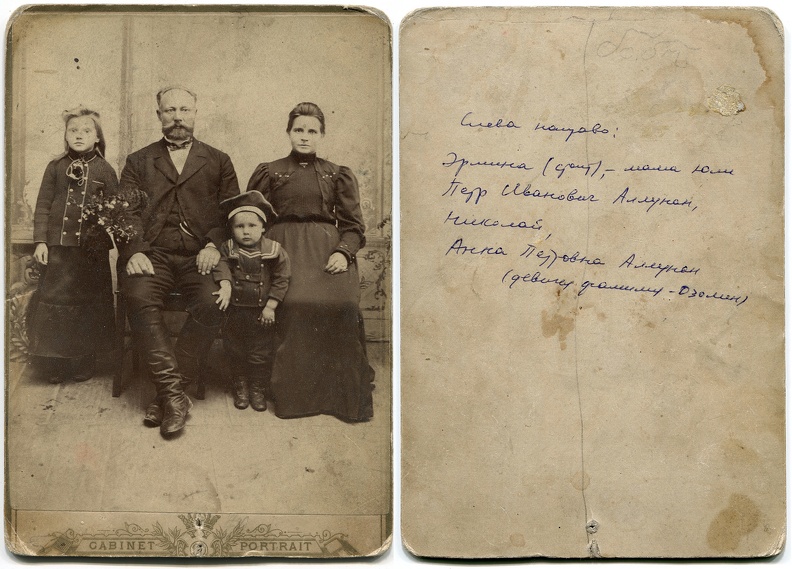 CABINET PORTRAIT
Слева направо:
Эрмина (дочь), - мама Юли
Пётр Иванович Аллунан,
Николай,
Анна Петровна Аллунан
(девичья фамилия - Озолин)